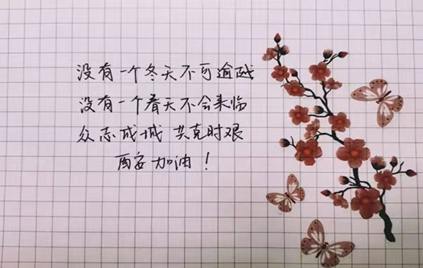 没有一个冬天不可逾越
没有一个春天不会来临
众志成城 共克时艰
西安加油!